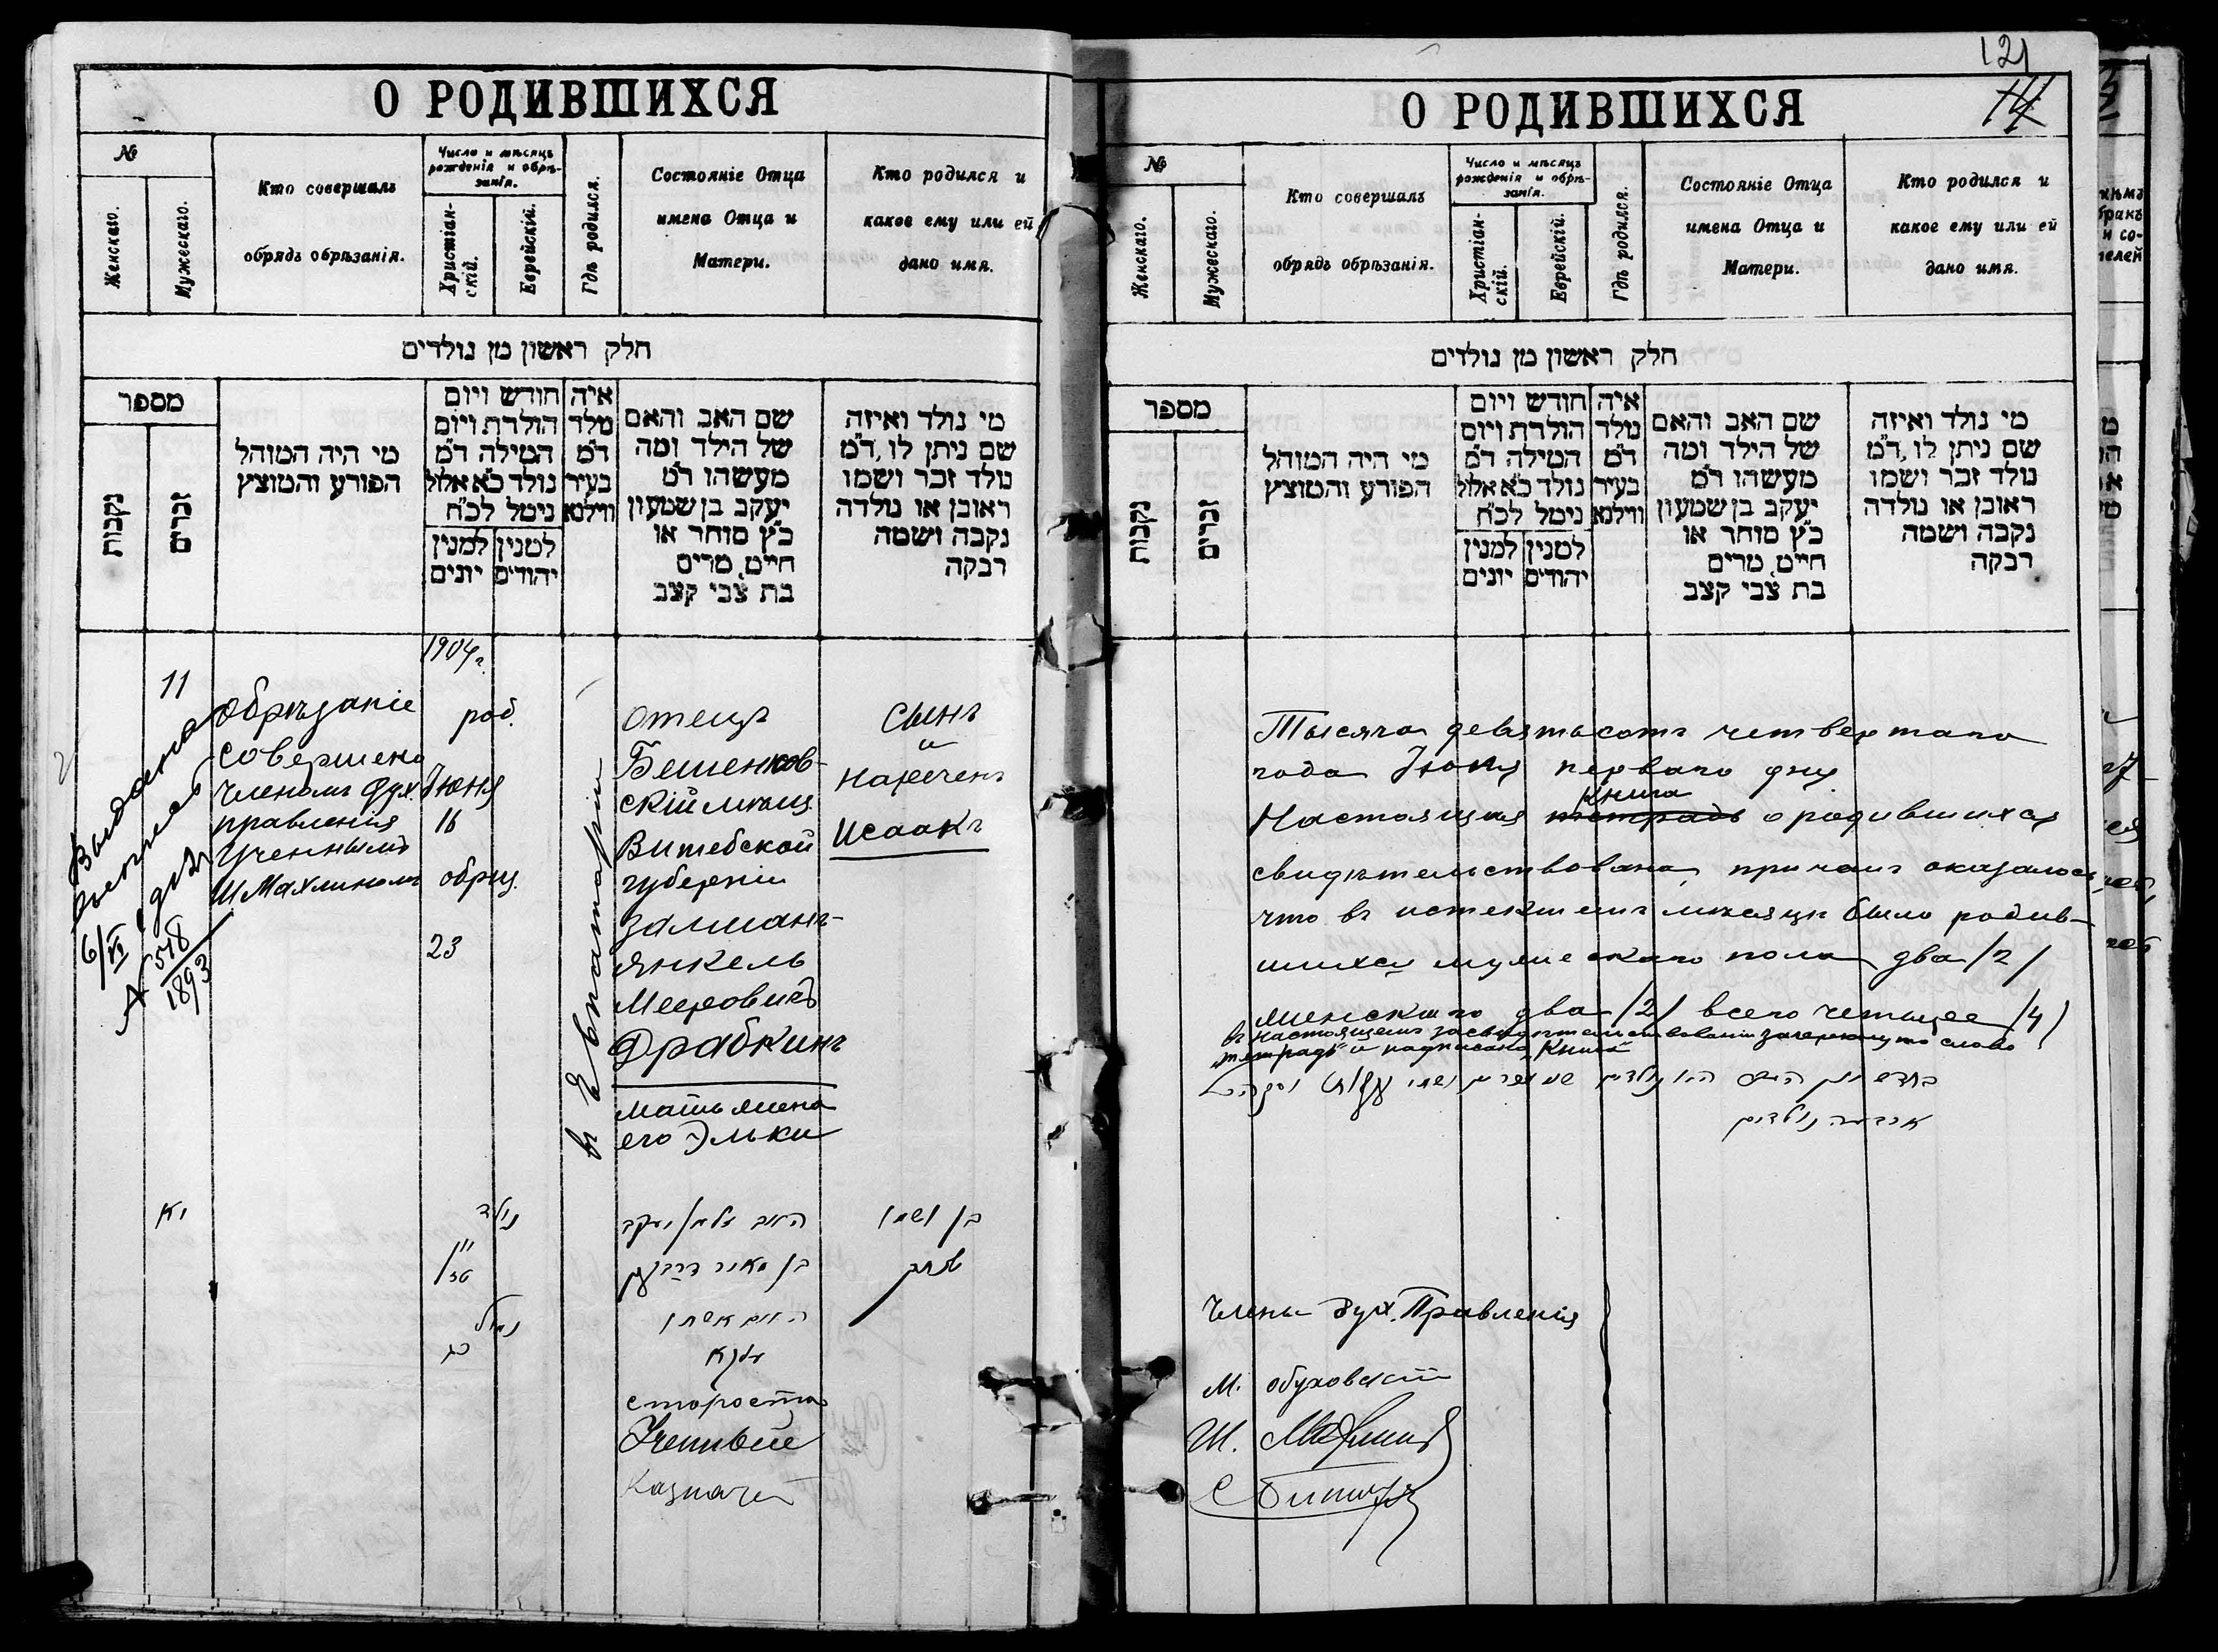 О РОДИВШИХСЯ
№
Женскаго.
Мужескаго.
Кто совершалъ
обрядъ обрѣзанія.
Число и мѣсяцъ
рожденія и обрѣ-
занія.
Христіан-
скій.
Еврейскій.
Гдѣ родился.
Состояніе Отца
имена Отца и
Матери.
Кто родился и
какое ему или ей
дано имя.
חלק ראשון מן נולדים
מספר
נקבות
זכרים
מי היה המוהל
הפורע והמוצץ
חודש ויום
הולדת ויום
המילה ד"מ
נולד כ"א אלול
נימל לכ"ח
למנין
יהודים
למנין
יונים
איה
נולד
ד"מ
בעיר
ווילנא
שם האב והאם
של הילד ומה
מעשהו ד"מ
יעקב בן שמעון
כ"ץ סוחר או
חייט, מרים
בת צבי קצב
מי נולד ואיזה
שם ניתן לו, ד"מ
נולד זכר ושמו
ראובן או נולדה
נקבה ושמה
רבקה
1904 г.
11
Выдана
6/VI
518
1893
Обрѣзаніе
совершено
членомъ Дух.
правленія
Ученнымъ
Ш. Махлиномъ
род.
Іюня
16
обрѣз.
23
въ Евпаторіи
Отецъ
Бешенков-
скій мѣщ.
Витебской
губерніи
Залманъ-
Янкель
Мееровичъ
Драбкинъ
мать жена
его Элька
Сынъ
и
нареченъ
Исаакъ
יא
נולד
טז
נימול
כג
האב זלמן יעקב
בן מאיר דרבקין
האם אשתו
עלקא
בן ושמו
יצחק
староста
Учтивый
Казначей
121
О РОДИВШИХСЯ
14
№
Женскаго.
Мужескаго.
Кто совершалъ
обрядъ обрѣзанія.
Число и мѣсяцъ
рожденія и обрѣ-
занія.
Христіан-
скій.
Еврейскій.
Гдѣ родился.
Состояніе Отца
имена Отца и
Матери.
Кто родился и
какое ему или ей
дано имя.
חלק ראשון מן נולדים
מספר
נקבות
זכרים
מי היה המוהל
הפורע והמוצץ
חודש ויום
הולדת ויום
המילה ד"מ
נולד כ"א אלול
נימל לכ"ח
למנין
יהודים
למנין
יונים
איה
נולד
ד"מ
בעיר
ווילנא
שם האב והאם
של הילד ומה
מעשהו ד"מ
יעקב בן שמעון
כ"ץ סוחר או
חייט, מרים
בת צבי קצב
מי נולד ואיזה
שם ניתן לו, ד"מ
נולד זכר ושמו
ראובן או נולדה
נקבה ושמה
רבקה
Тысяча девятьсотъ четвертаго
года Іюня перваго дня
книга
Настоящая тетрадь о родившихся
свидѣтельствована, причемъ оказалось,
что въ истекшемъ мѣсяцѣ было родив-
шихся мужескаго пола два /2/
женскаго два /2/ всего четыре /4/
въ настоящемъ засвидѣтельствованіи зачеркнуто слово
„тетрадь" и надписано „книга"
ארבעה נולדים
Члены Дух. Правленія
М. Обуховскій
Ш. Махлинъ